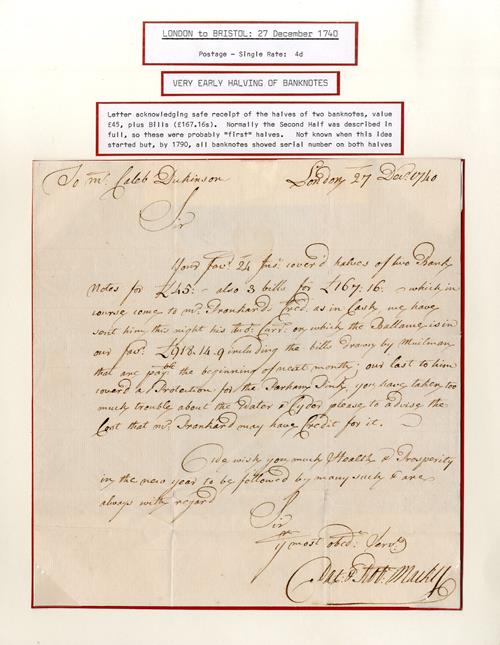 LONDON to BRISTOL: 27 December 1740
Postage - Single Rate: 4d
VERY EARLY HALVING OF BANKNOTES
Letter acknowledging safe receipt of the halves of two banknotes, value
£45, plus Bills (£167.16s). Normally the Second Half was described in
full, so these were probably "first" halves. Not known when this idea
started but, by 1790, all banknotes showed serial number on both halves
To Mr. Caleb Dickinson London 27 Decr. 1740
Sir
Your favr. 24 Inst. cover'd halves of two Bank
Notes for £45:- also 3 bills for £167.16:- which in
course come to Mr. Credt. as in Cash, we have
sent him this night his Currt. on which the Ballance is in
our favr. £918.14.9 including the bills drawn by
that are payble the beginning of next month; our last to him
coverd a Protection for the Parham you have taken too
much trouble about the Water & Cyder please to advise the
Cost that Mr. may have Credit for it.
We wish you much Health & Prosperity
in the new year to be followed by many such & are
always with regard
Sir
yr most obedt. Servts.